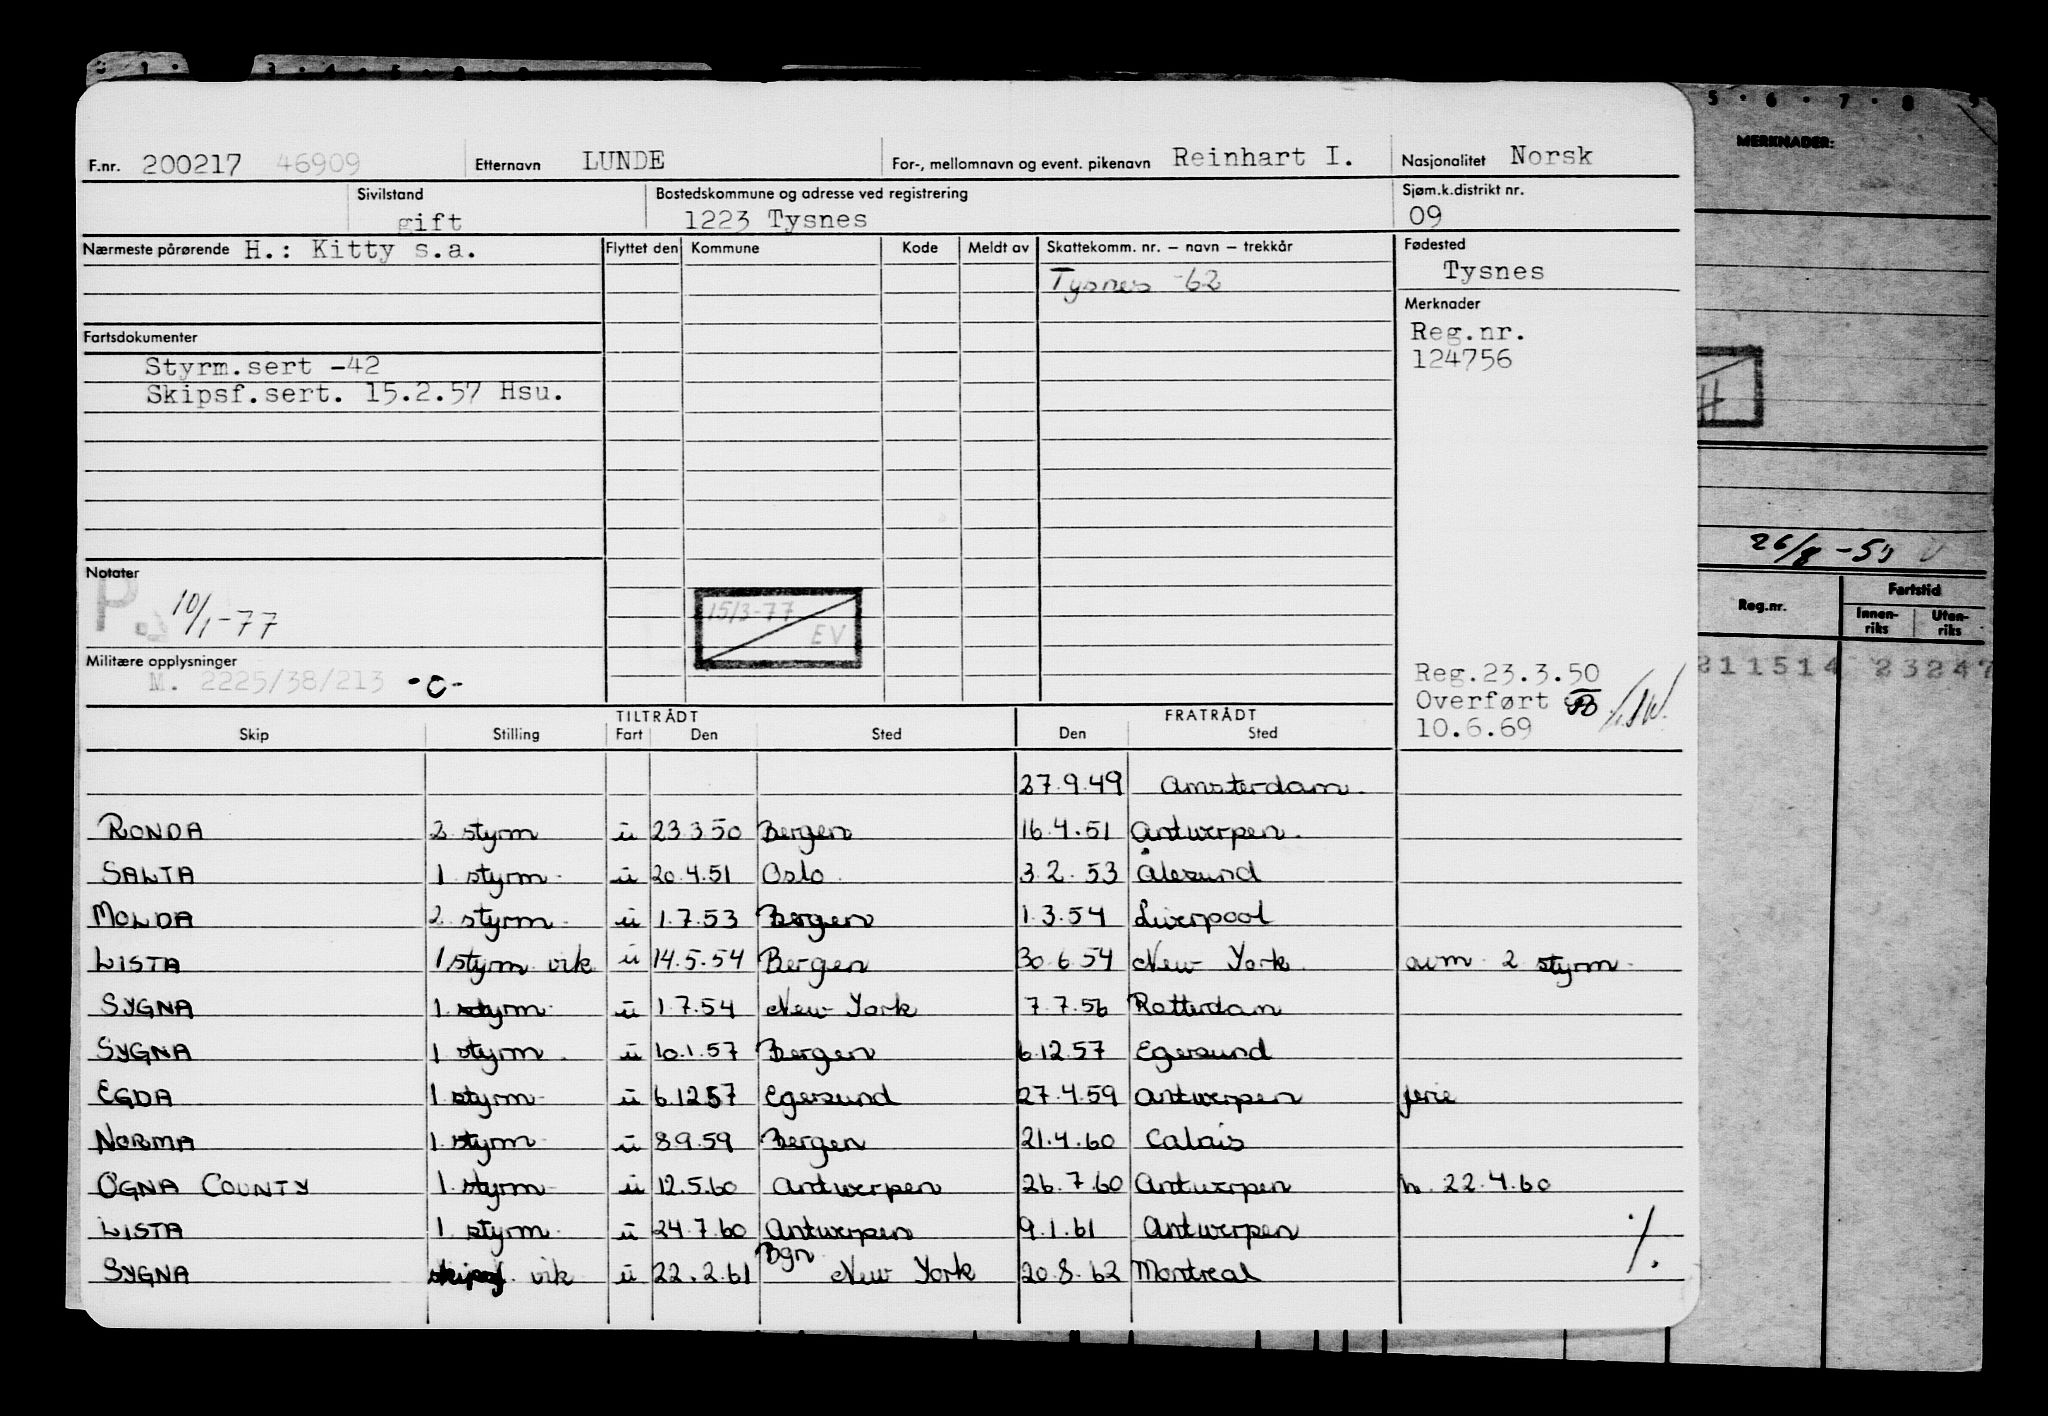 F.nr. 200217 46909 Etternavn LUNDE For-, mellomnavn og event. pikenavn Reinhart I. Nasjonalitet Norsk
Sivilstand gift Bostedskommune og adresse ved registrering 1223 Tysnes Sjøm.k.distrikt nr. 09
Nærmeste pårørende H.: Kitty s.a. Flyttet den Kommune Kode Meldt av Skattekomm. nr. – navn – trekkår Fødested
Tysnes -62 Tysnes
Merknader
Reg.nr.
124756
Fartsdokumenter
Styrm.sert -42
Skipsf.sert. 15.2.57 Hsu.
Notater
P. 10/1-77
15/3-77
EV
Militære opplysninger
M. 2225/38/213 -0-
Reg.23.3.50
Overført
10.6.69
TILTRÅDT FRATRÅDT
Skip Stilling Fart Den Sted Den Sted
27.9.49 Amsterdam.
RONDA 2 styrm u 23.3.50 Bergen 16.4.51 Antwerpen.
SALTA 1 styrm u 20.4.51 Oslo 3.2.53 Ålesund
MOLDA 2 styrm u 1.7.53 Bergen 1.3.54 Liverpool
LISTA 1 styrm vik u 14.5.54 Bergen 30.6.54 New York avm 2 styrm
SYGNA 1 styrm u 1.7.54 New York 7.7.56 Rotterdam
SYGNA 1 styrm u 10.1.57 Bergen 6.12.57 Egersund
EGDA 1 styrm u 6.12.57 Egersund 27.4.59 Antwerpen ferie
NORMA 1 styrm u 8.9.59 Bergen 21.4.60 Calais
OGNA COUNTY 1 styrm u 12.5.60 Antwerpen 26.7.60 Antwerpen h. 22.4.60
LISTA 1 styrm u 24.7.60 Antwerpen 9.1.61 Antwerpen
SYGNA skipsf. vik u 22.2.61 Bgn New York 20.8.62 Montreal
5 · 6 · 7 · 8
MERKNADER:
Reg.nr. Fartstid
Innen-riks Uten-riks
211514 23247